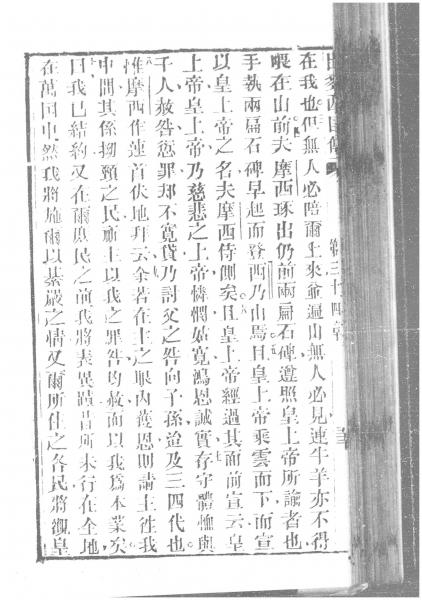 出麥西國傳 第三十四章
在我也但無人必陪爾上來並遍山無人必見連牛羊亦不得
喂在山前夫摩西琢出仍前兩扁石碑遵照皇上帝所諭者也
手執兩扁石碑早起而登西乃山焉且皇上帝乘雲而下而宣
以皇上帝之名夫摩西侍側矣且皇上帝經過其面前宣云皇
上帝皇上帝乃慈悲之上帝憐憫姑寬鴻恩誠實存守體恤與
千人赦咎愆罪却不寬貸乃討父之咎向子孫迨及三四代也
惟摩西作速首伏地拜云余若在主之眼內獲恩則請主徃我
中間其係拗頸之民祈主以我之罪咎均赦而以我為本業矣
曰我已結約又在爾庶民之前我將表異蹟昔所未行在全地
在萬國中然我將施爾以綦嚴之情又爾所住之各民將觀皇